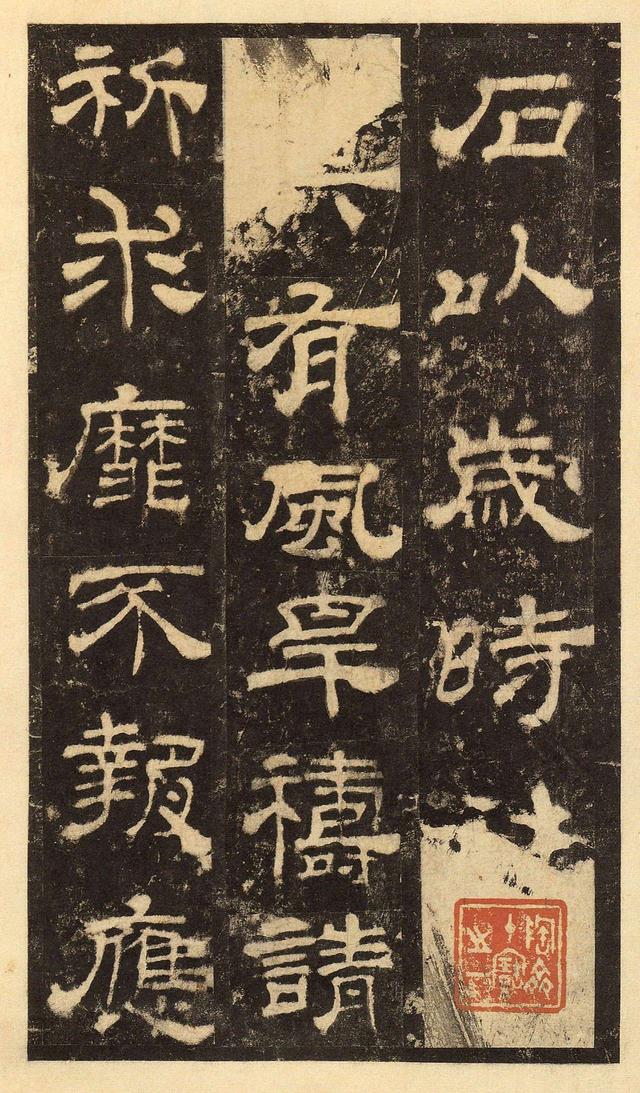 石以歲時
有風旱禱請
祈求靡不報應